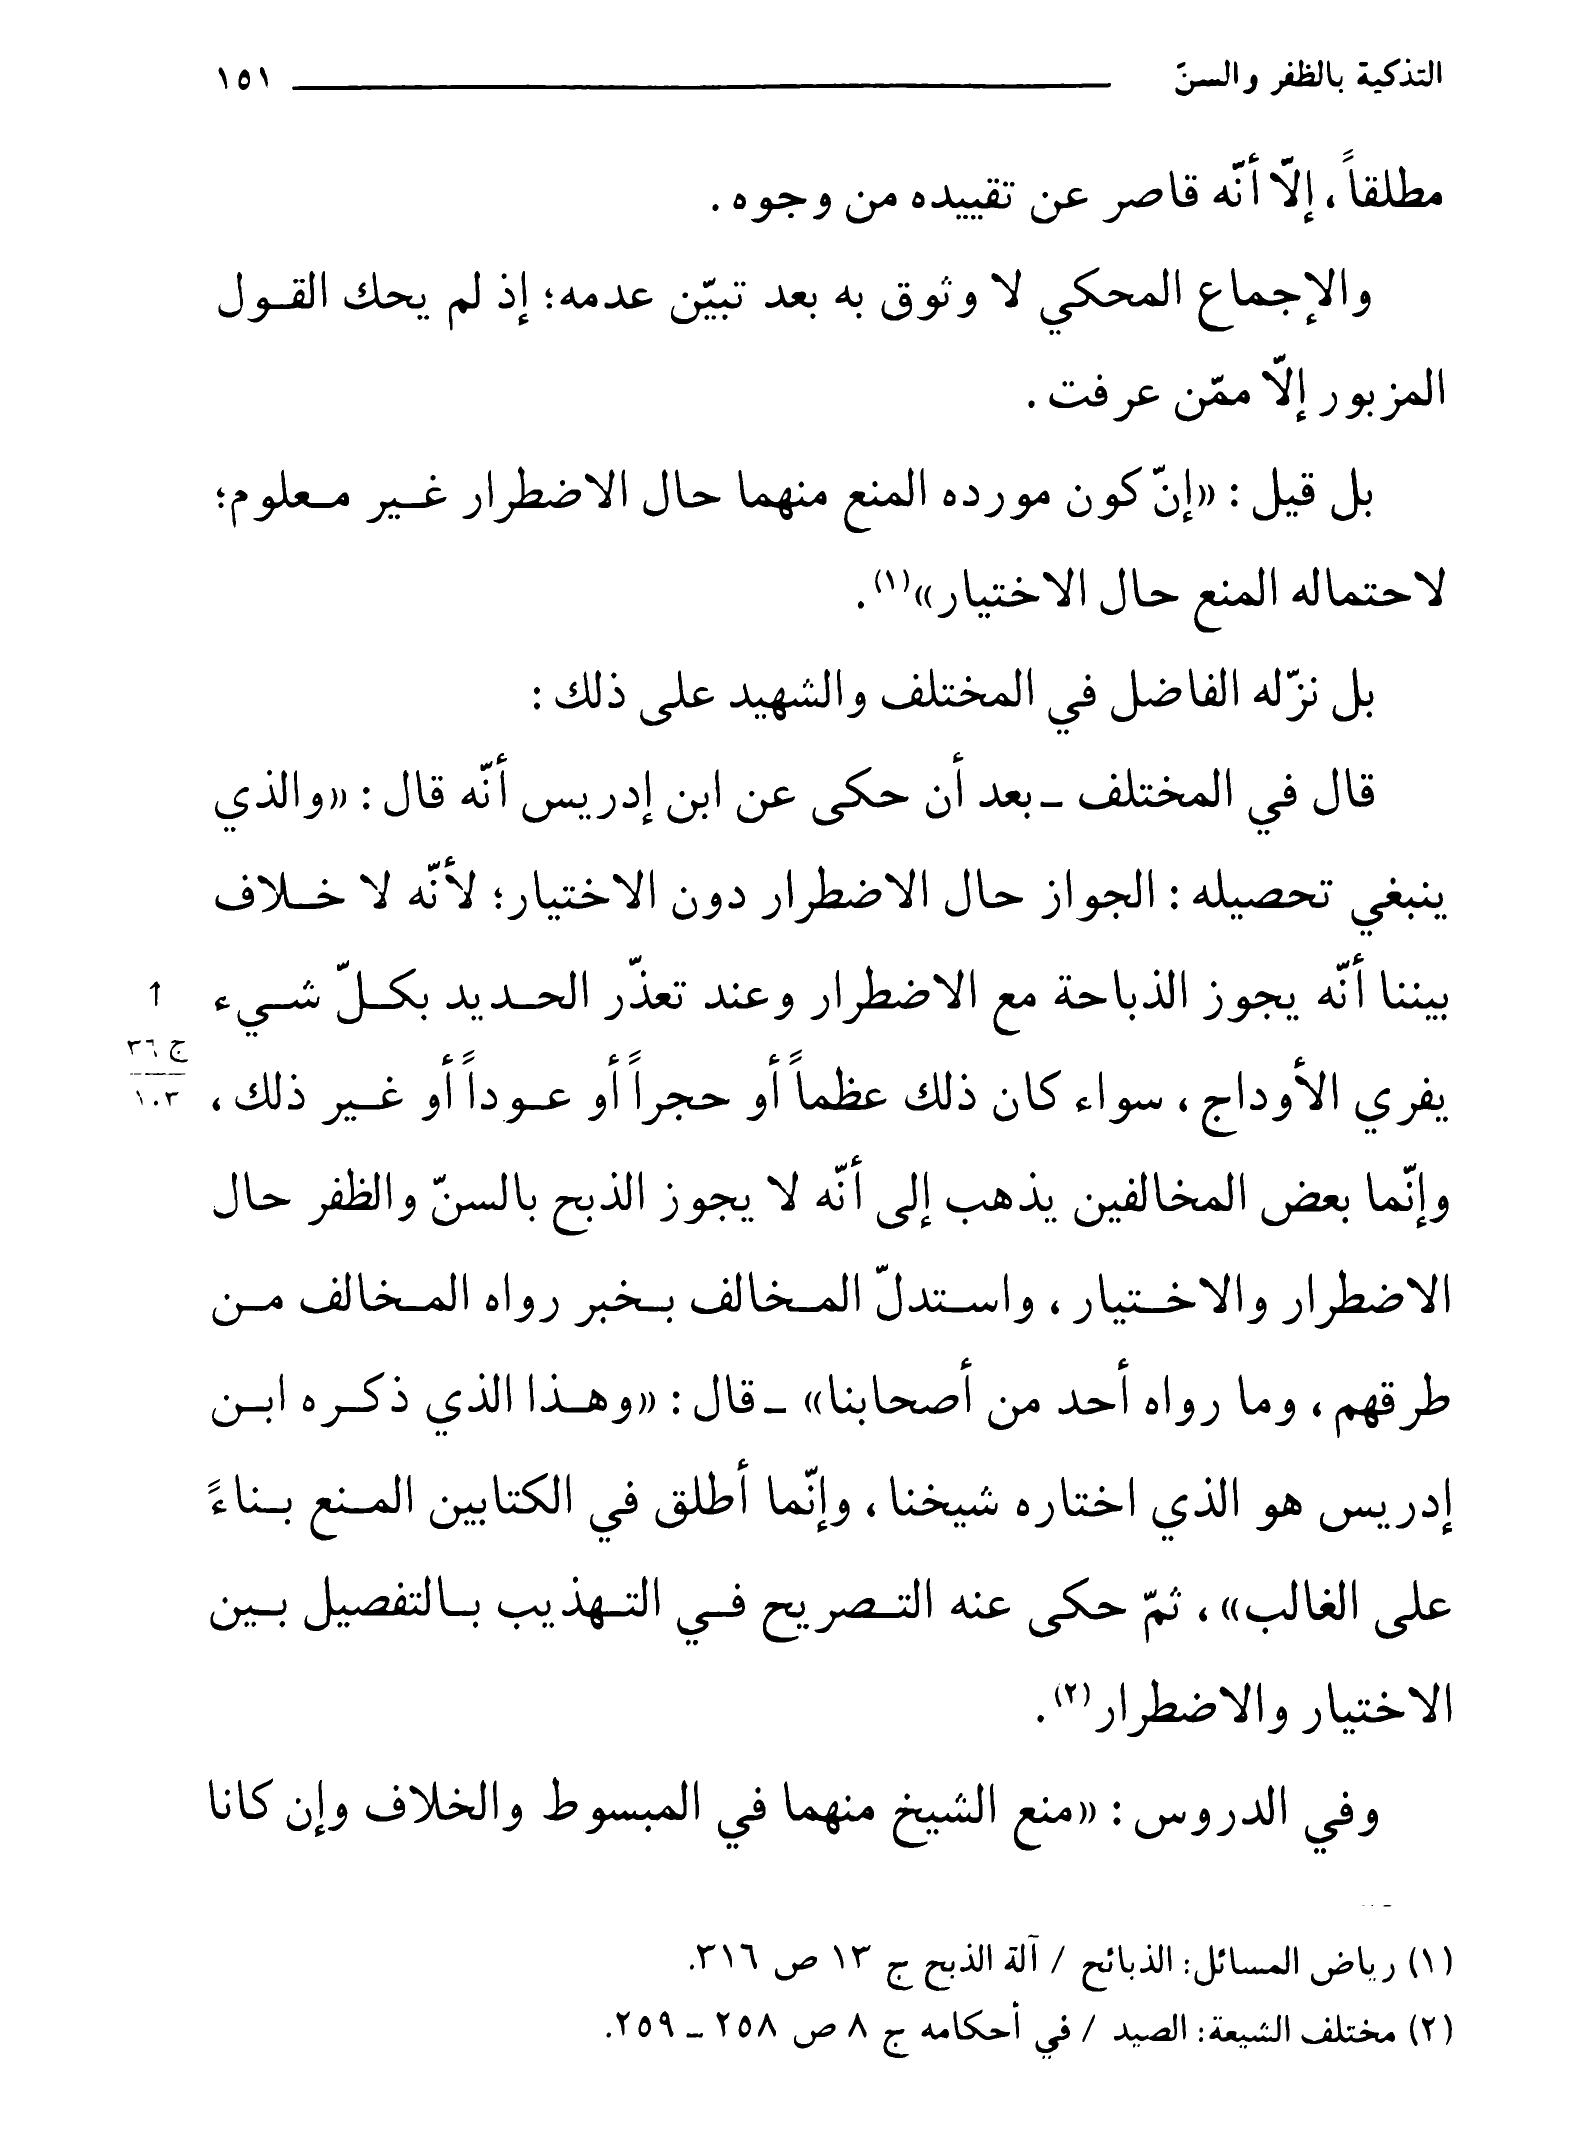 التذكية بالظفر والسنّ ١٥١
مطلقاً ، إلّا أنّه قاصر عن تقييده من وجوه .
والإجماع المحكي لا وثوق به بعد تبيّن عدمه؛ إذ لم يحك القول
المزبور إلّا ممّن عرفت .
بل قيل : «إنّ كون مورده المنع منهما حال الاضطرار غير معلوم؛
لاحتماله المنع حال الاختيار»(١).
بل نزّله الفاضل في المختلف والشهيد على ذلك :
قال في المختلف ـ بعد أن حكى عن ابن إدريس أنّه قال : «والذي
ينبغي تحصيله : الجواز حال الاضطرار دون الاختيار؛ لأنّه لا خلاف
بيننا أنّه يجوز الذباحة مع الاضطرار وعند تعذّر الحديد بكلّ شيء
↑
ج ٣٦
١٠٣
يفري الأوداج ، سواء كان ذلك عظماً أو حجراً أو عوداً أو غير ذلك ،
وإنّما بعض المخالفين يذهب إلى أنّه لا يجوز الذبح بالسنّ والظفر حال
الاضطرار والاختيار ، واستدلّ المخالف بخبر رواه المخالف من
طرقهم ، وما رواه أحد من أصحابنا» ـ قال : «وهذا الذي ذكره ابن
إدريس هو الذي اختاره شيخنا ، وإنّما أطلق في الكتابين المنع بناءً
على الغالب» ، ثمّ حكى عنه التصريح في التهذيب بالتفصيل بين
الاختيار والاضطرار(٢).
وفي الدروس : «منع الشيخ منهما في المبسوط والخلاف وإن كانا
(١) رياض المسائل: الذبائح / آلة الذبح ج ١٣ ص ٣١٦.
(٢) مختلف الشيعة: الصيد / في أحكامه ج ٨ ص ٢٥٨ ـ ٢٥٩.